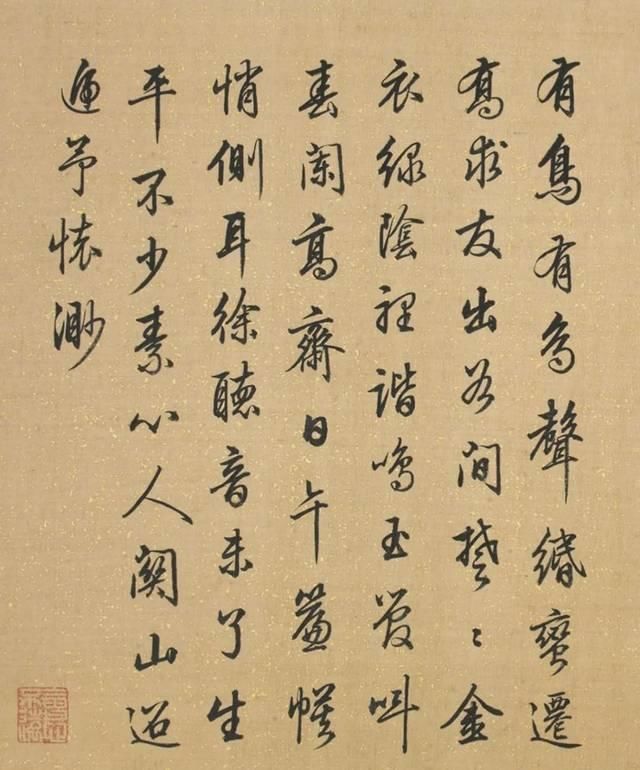 有鳥有鳥聲緡蠻遷
喬求友出谷間楚〻金
衣綠陰裡諧鳴玉管叫
春闌高齋日午簾幙
悄側耳徐聽音未了生
平不少素心人關山迢
遞予懷渺